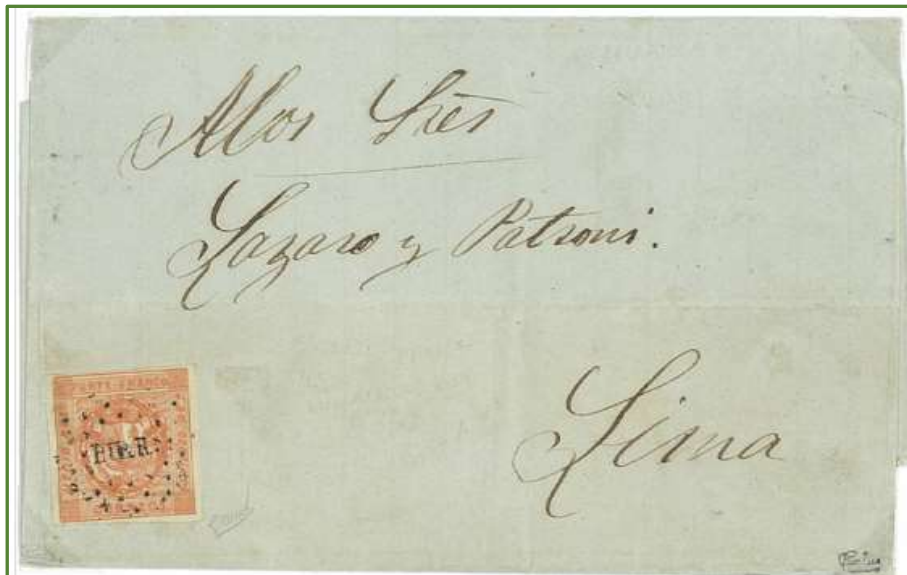 Alos Sres
Lazaro y Patroni.
Lima
PORTE FRANCO
CORREOS